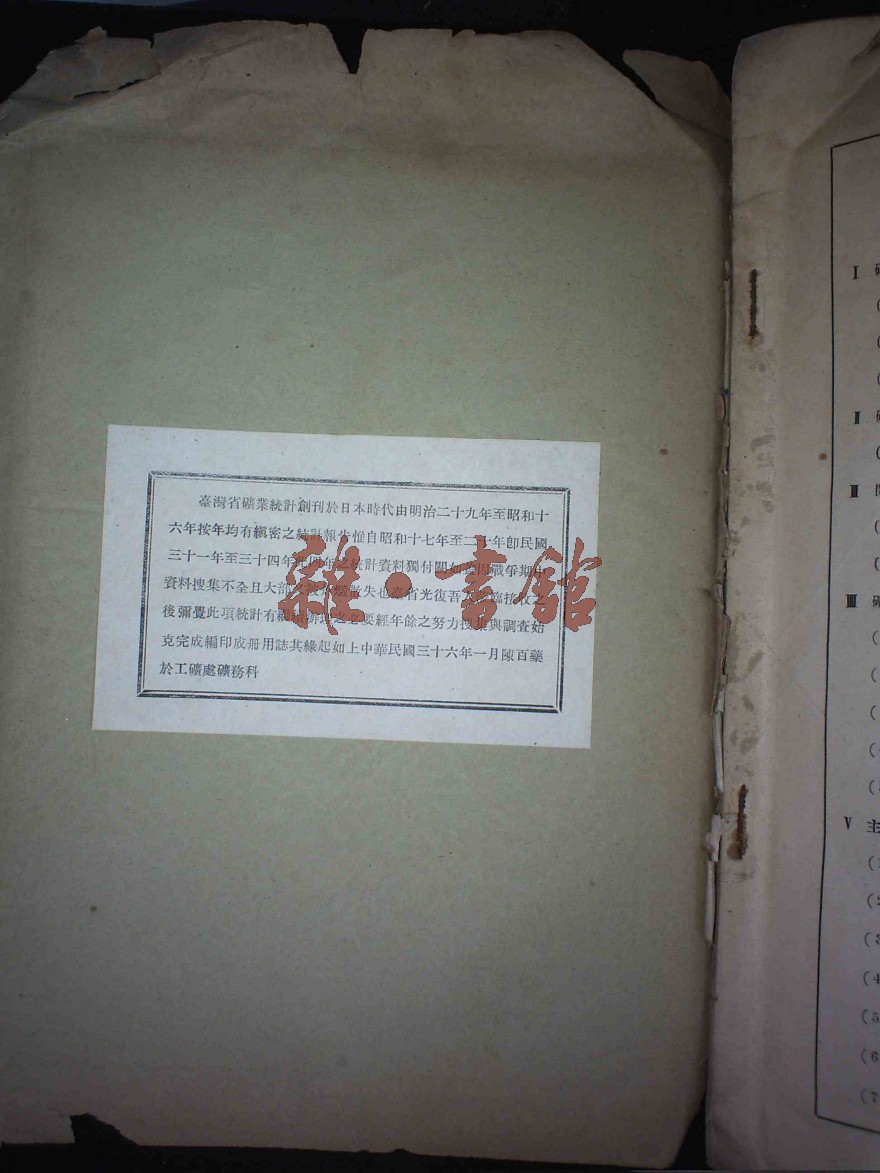 臺灣省礦業統計創刊於日本時代由明治二十九年至昭和十
六年按年均有縝密之統計報告惟自昭和十七年至二十年卽民國
三十一年至三十四年 四年之統計資料獨付闕如 因戰爭期中
資料搜集不全且大部 散失也 省光復吾 臨接收之
後彌覺此項統計有繼續 之必要經年餘之努力搜集與調查始
克完成編印成册用誌其緣起如上中華民國三十六年一月陳百藥
於工礦處礦務科
雜·書館
I
(
(
(
II
(
II
(
(
III
(
(
(
(
(
V 主
(1
(2
(3
(4
(5
(6
(7